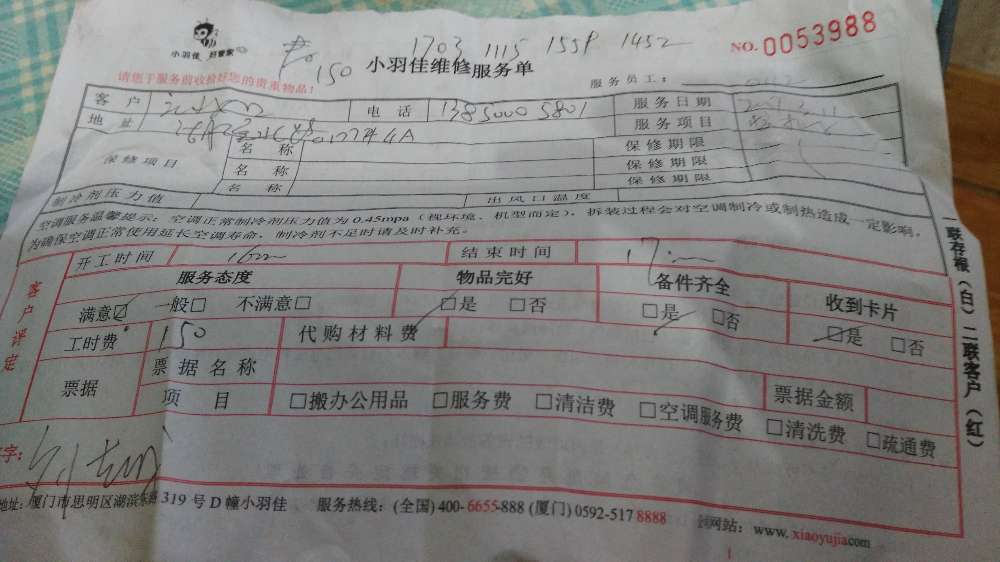 小羽佳 好管家
150
1703 1115 1559 1452
NO. 0053988
小羽佳维修服务单
请您于服务前收拾好您的贵重物品!
服务员工:
客户 电话 13850005801 服务日期
地址 服务项目
保修项目 名称 保修期限
名称 保修期限
名称 保修期限
制冷剂压力值 出风口温度
空调服务温馨提示:空调正常制冷剂压力值为0.45mpa(视环境、机型而定),拆装过程会对空调制冷或制热造成一定影响,
为确保空调正常使用延长空调寿命,制冷剂不足时请及时补充。
开工时间 结束时间
客户评定
服务态度 物品完好 备件齐全 收到卡片
满意☑ 一般□ 不满意□ □是 □否 □是 □否 □是 □否
工时费 150 代购材料费
票据 票据名称 票据金额
项目 □搬办公用品 □服务费 □清洁费 □空调服务费 □清洗费 □疏通费
字:
地址:厦门市思明区湖滨东路319号D幢小羽佳 服务热线:(全国)400-6655-888 (厦门)0592-517 8888 网站:www.xiaoyujia.com
一联存根(白)二联客户(红)